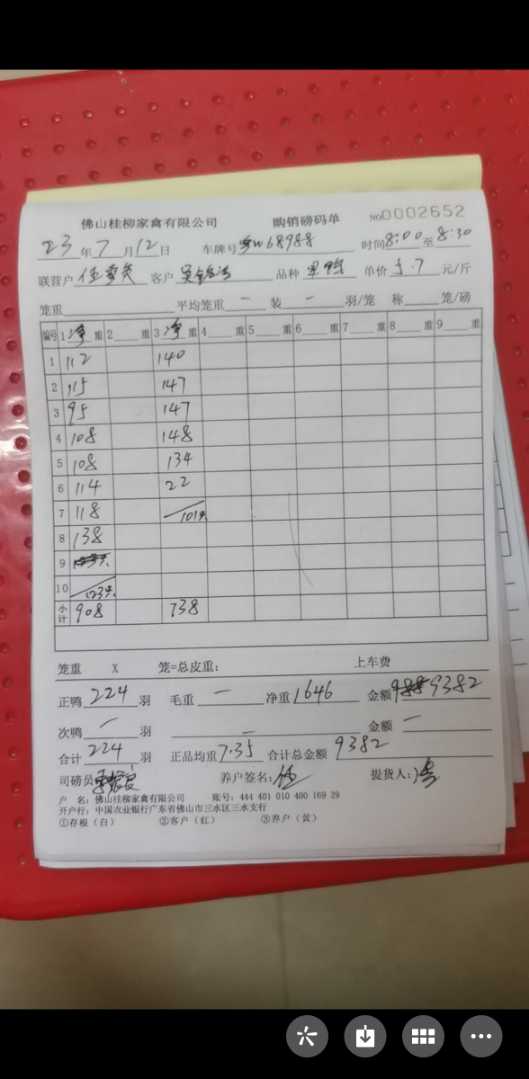 佛山桂柳家禽有限公司 购销磅码单 №0002652
23年7月12日 车牌号粤W68988 时间8:00至8:30
联营户 伍 客户 吴 品种 单价5.7元/斤
笼重 平均笼重 一 装 一 羽/笼 称 笼/磅
编号 1净重 2重 3净重 4重 5重 6重 7重 8重 9重
1 112 140
2 115 147
3 95 147
4 108 148
5 108 134
6 114 22
7 118 101只
8 138
9
10 123只
小计 908 738
笼重 X 笼=总皮重: 上车费
正鸭 224 羽 毛重 一 净重 1646 金额 9382
次鸭 一 羽 一 金额 一
合计 224 羽 正品均重 7.35 合计总金额 9382
司磅员 养户签名: 伍 提货人:
户 名:佛山桂柳家禽有限公司 账号:444 401 010 400 169 29
开户行:中国农业银行广东省佛山市三水区三水支行
①存根(白) ②客户(红) ③养户(黄)